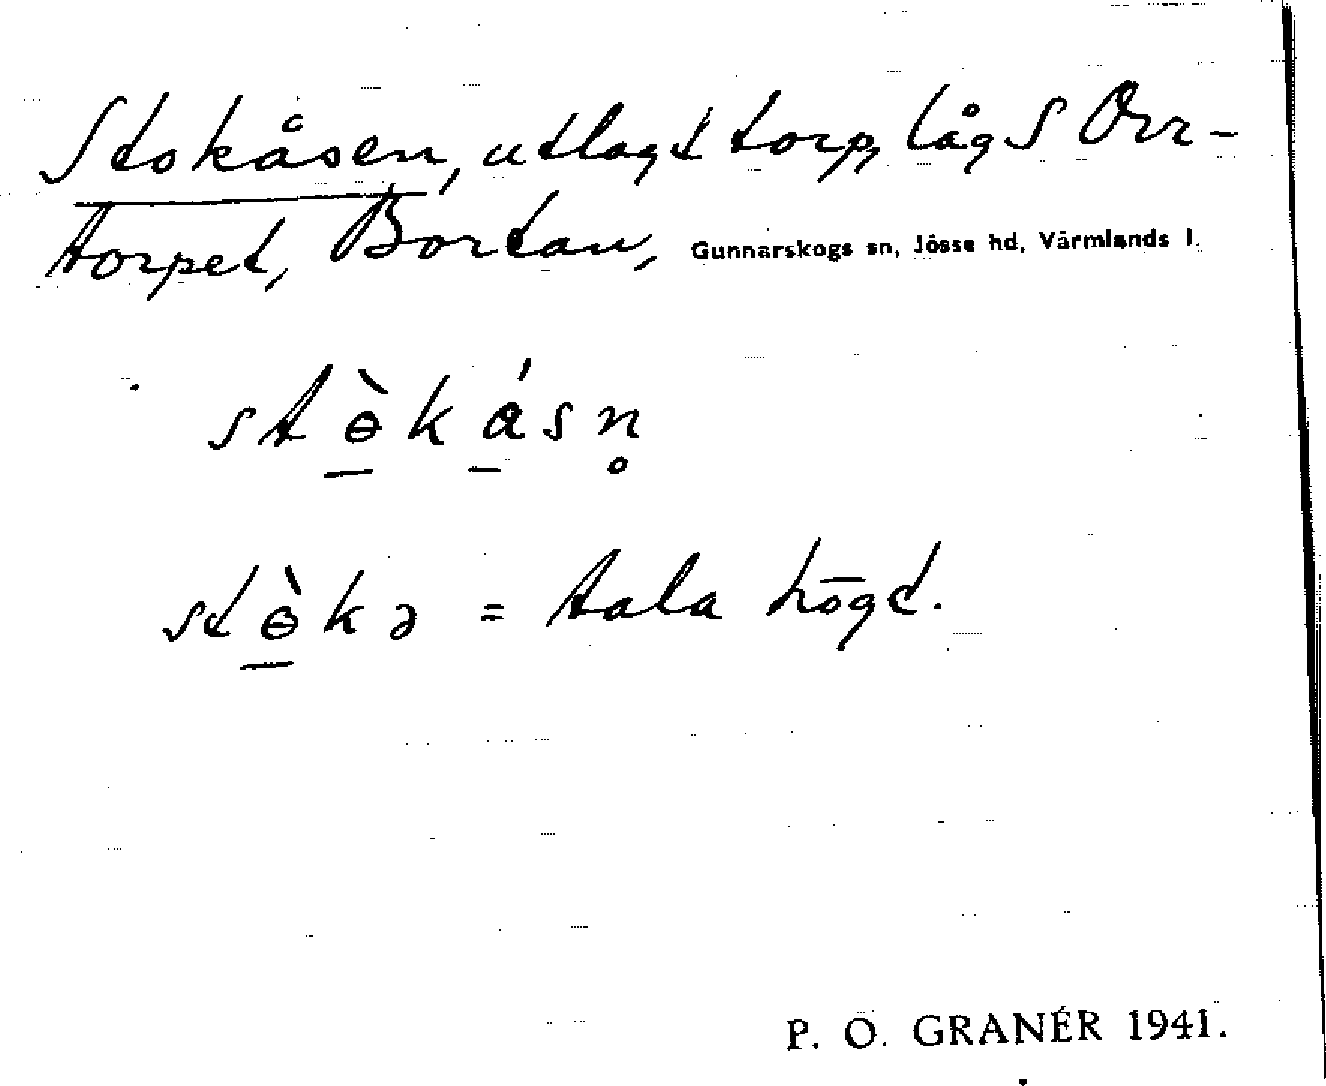 Stokåsen, utlagt torp, låg S Orr-
torpet, Bortan, Gunnarskogs sn, Jösse hd, Värmlands l.
stɵ̱̀ká̱sn̥
stɵ̱̀kə = tala högt.
P. O. GRANÉR 1941.